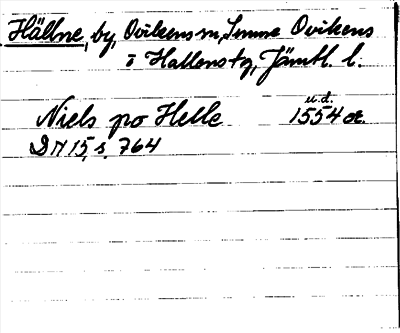 Hällne, by, Ovikens sn, Ovikens
i Hallens tg, Jämtl. l.
u.d.
Niels po Helle 1554 or.
DN 15, s. 764